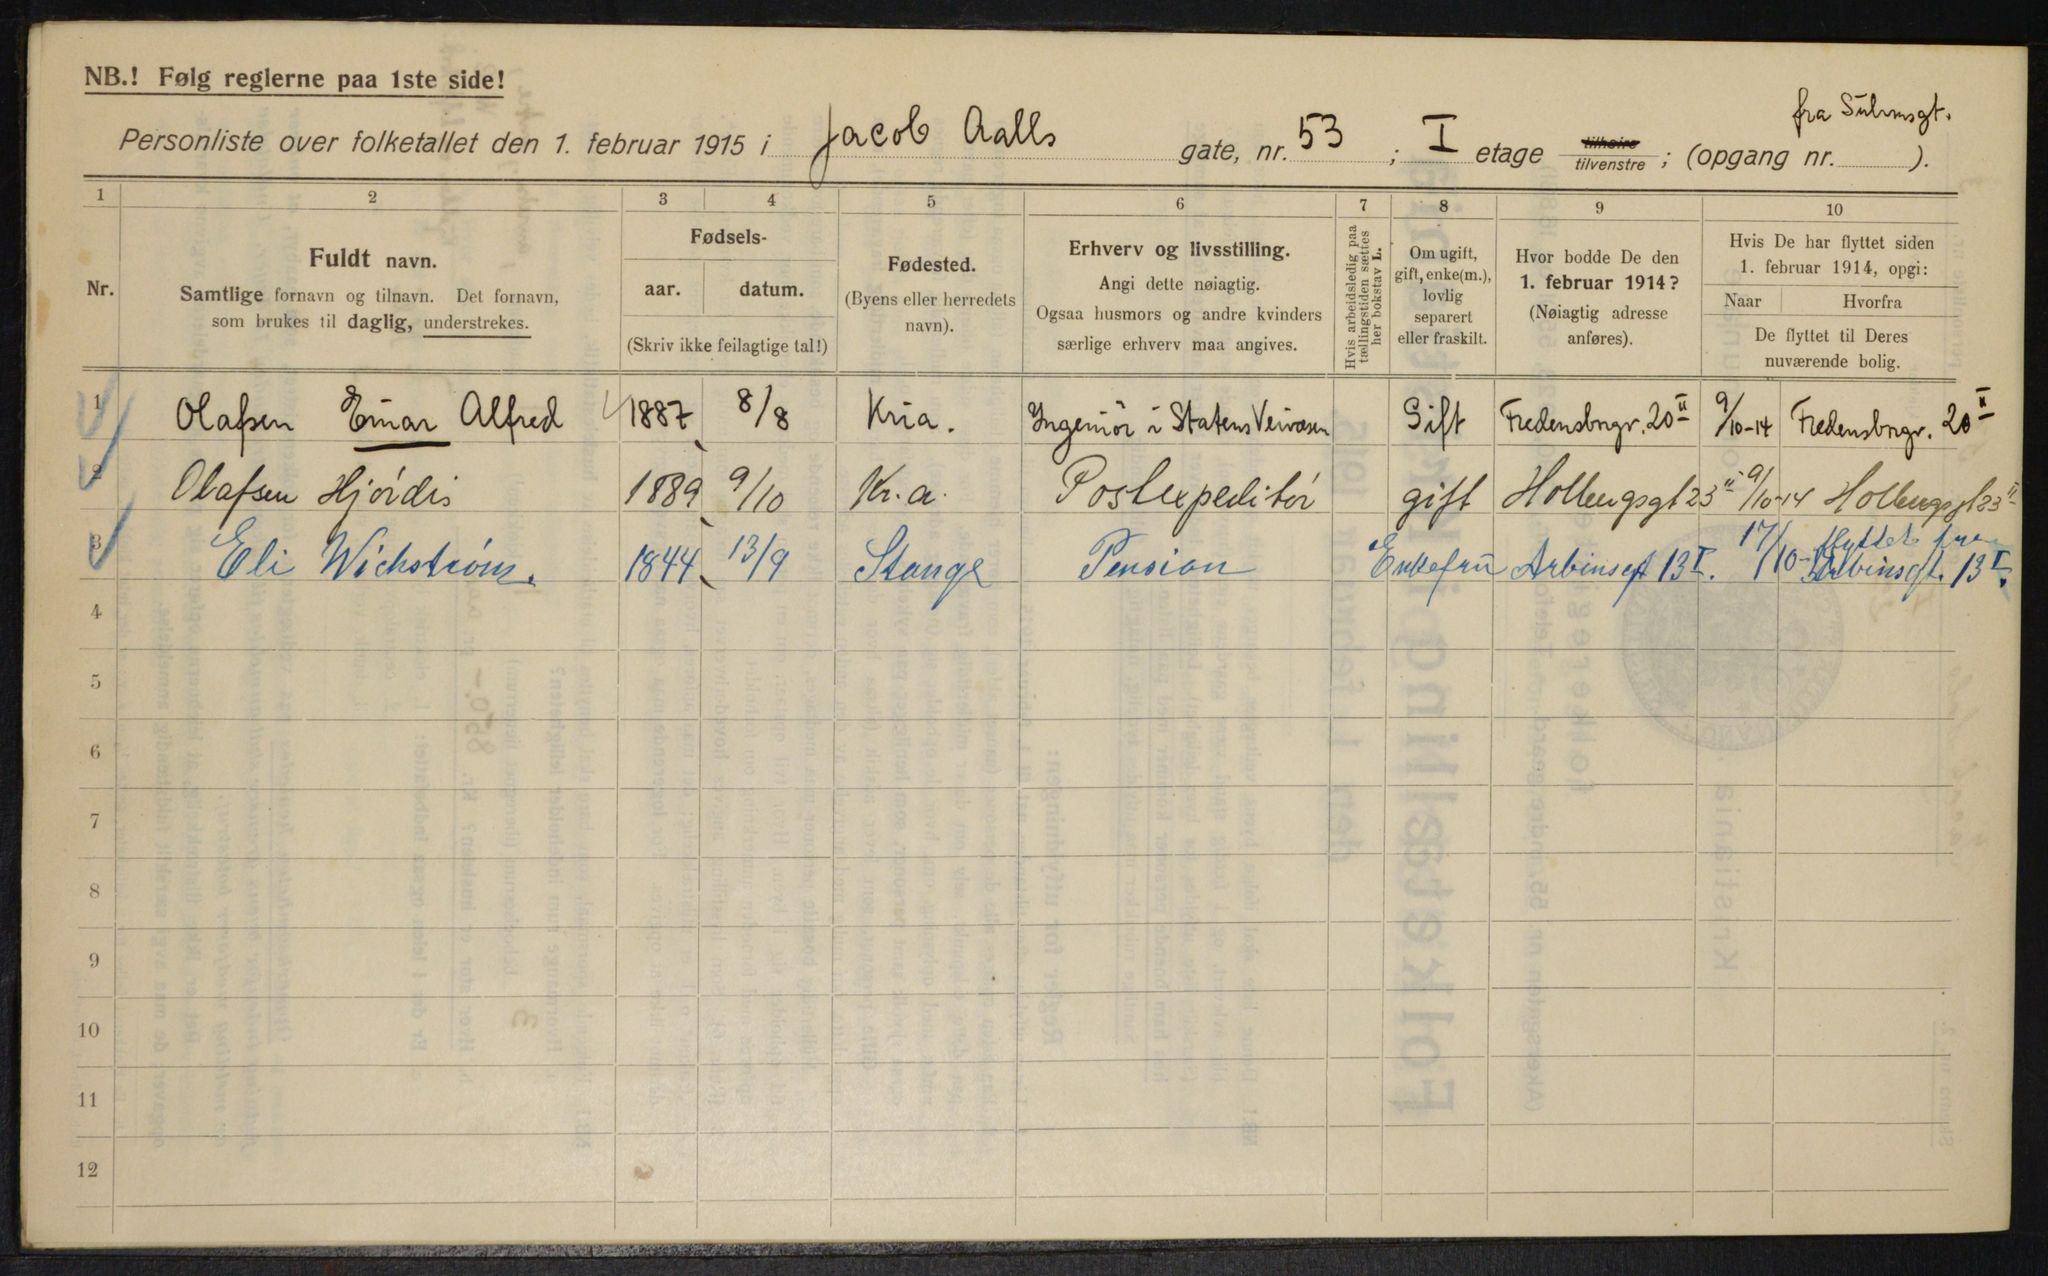 NB.! Følg reglerne paa 1ste side!
fra Sulvmsgt.
Personliste over folketallet den 1. februar 1915 i Jacob Aalls gate, nr. 53 ; I etage tilhøire tilvenstre ; (opgang nr. ).
1 2 3 4 5 6 7 8 9 10
Nr.
Fuldt navn.
Samtlige fornavn og tilnavn. Det fornavn,
som brukes til daglig, understrekes.
Fødsels-
aar. datum.
(Skriv ikke feilagtige tal!)
Fødested.
(Byens eller herredets
navn).
Erhverv og livsstilling.
Angi dette nøiagtig.
Ogsaa husmors og andre kvinders
særlige erhverv maa angives.
Hvis arbeidsledig paa
tællingstiden sættes
her bokstav L.
Om ugift,
gift, enke(m.),
lovlig
separert
eller fraskilt.
Hvor bodde De den
1. februar 1914?
(Nøiagtig adresse
anføres).
Hvis De har flyttet siden
1. februar 1914, opgi:
Naar Hvorfra
De flyttet til Deres
nuværende bolig.
1 Olafsen Einar Alfred 1887 8/8 Kria. Ingeniör i Statens Veivæsen Gift Fredensbrgv. 20 II 9/10-14 Fredensbrgv. 20 II
2 Olafsen Hjørdis 1889 9/10 Kr.a. Postexpeditør gift Holbergsgt 23 II 9/10-14 Holbergsgt 23 II
3 Eli Wickstrøm. 1844 13/9 Stange Pension Enkefru Arbinsgt 13 I. 17/10- flyttet fra
Arbinsgt. 13 I.
4
5
6
7
8
9
10
11
12